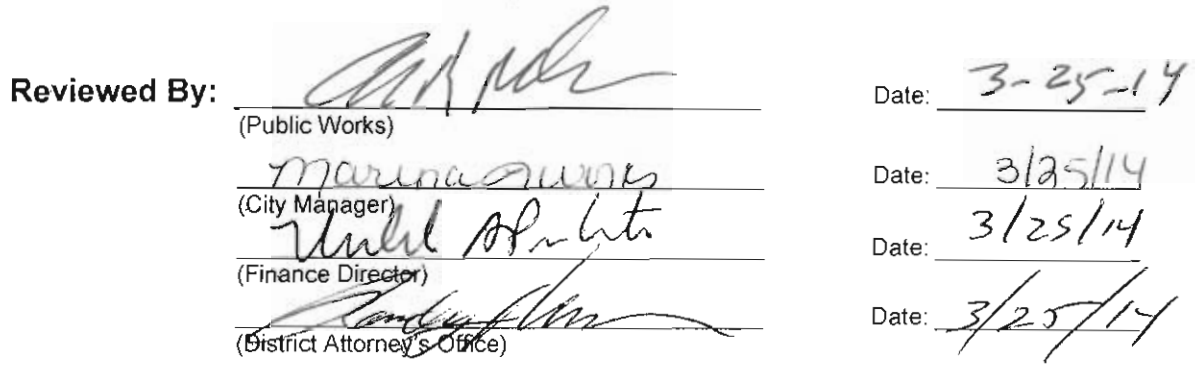 Reviewed By: Date: 3-25-14
(Public Works)
Marina Date: 3/25/14
(City Manager)
Date: 3/25/14
(Finance Director)
Date: 3/25/14
(District Attorney's Office)